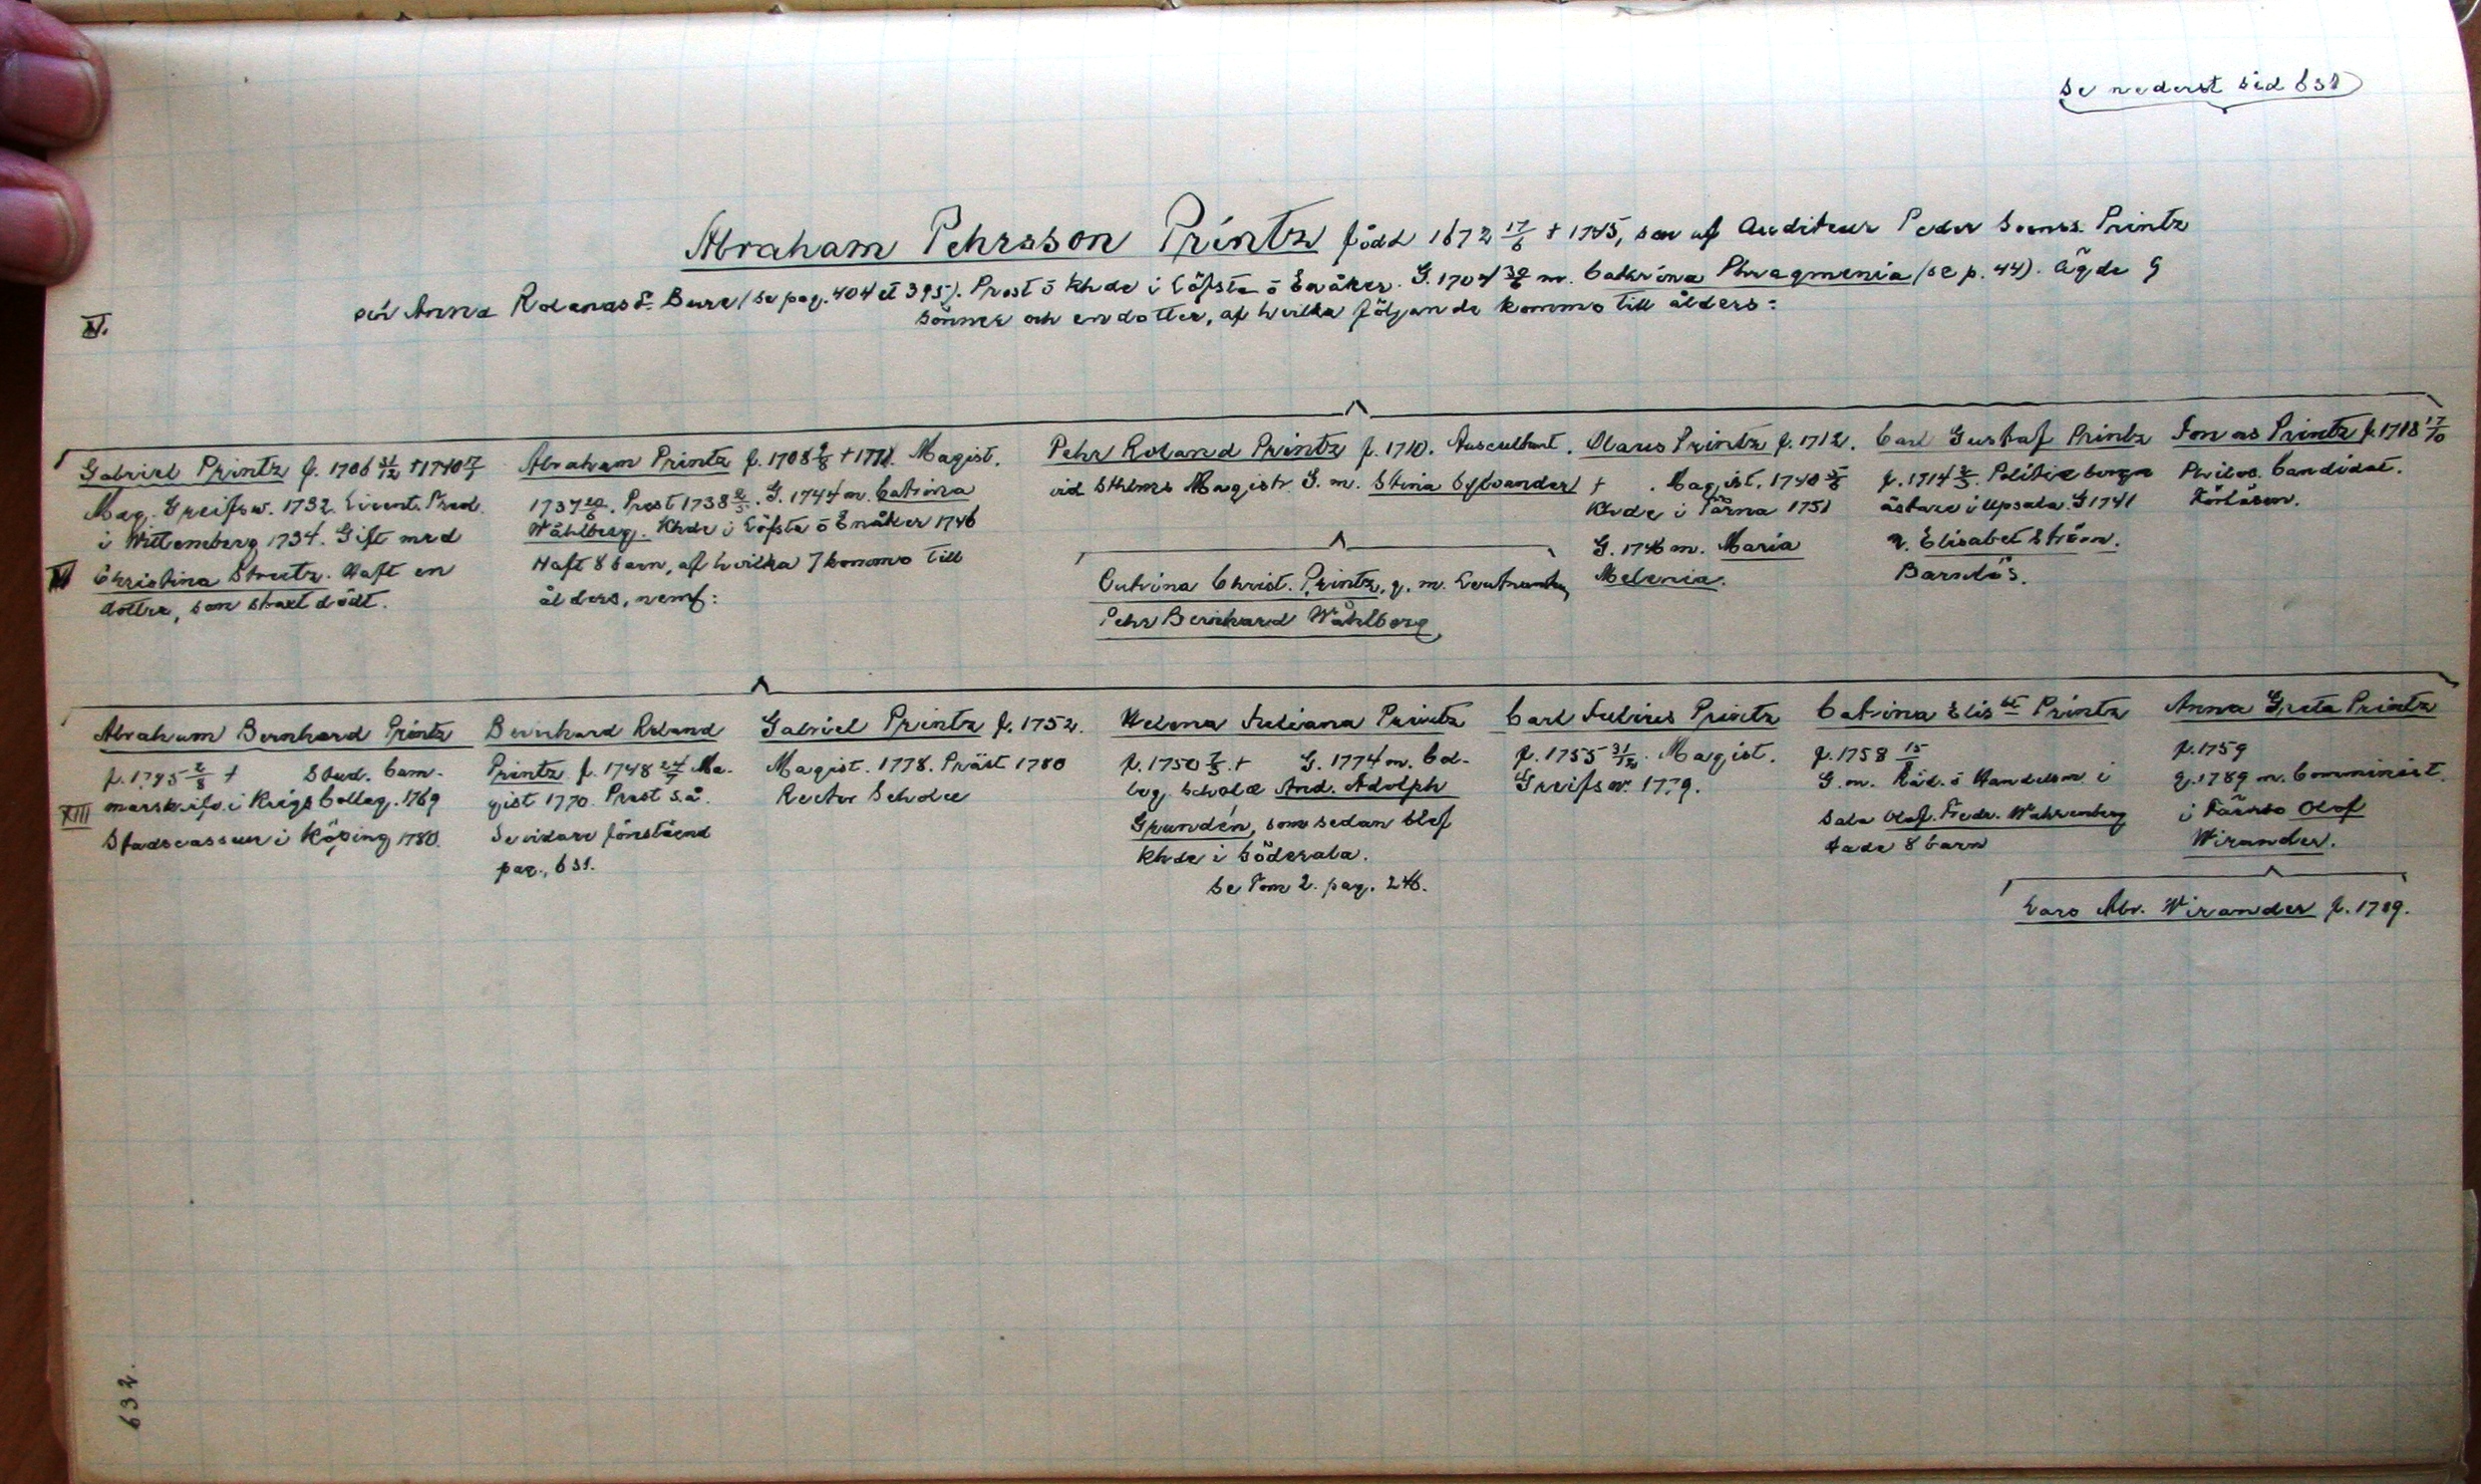 se nederst sid 631
Abraham Pehrsson Printz född 1672 17/6 † 1745, son af Auditeur Peder Svens. Printz
och Anna Rolandsdr Bure (se pag. 404 et 395). Prost o Khde i Löfsta o Enåker. G. 1704 30/8 m. Cathrina Phragmenia (se p. 44). Ägde 9
söner och en dotter, af hvilka följande kommo till ålders:
XI.
Gabriel Printz f. 1706 31/12 † 1740 17/7
Mag. Greifsw. 1732. Licent. Pred.
i Wittemberg 1734. Gift med
Christina Streetz. Haft en
dotter, som straxt dödt.
XII
Abraham Printz f. 1708 9/8 † 1771. Magist.
1737 20/6. Prest 1738 2/5. G. 1744 m. Catrina
Wåhlberg. Khde i Löfsta o Enåker 1746
Haft 8 barn, af hvilka 7 kommo till
ålders, nemf:
Pehr Roland Printz f. 1710. Auscultant.
vid Sthlms Magistr. G. m. Stina Cylvander
Catrina Christ. Printz, g. m. Leutnanten
Pehr Bernhard Wåhlberg
Olaus Printz f. 1712.
† . Magist. 1740
Khde i Tärna 1751
G. 1746 m. Maria
Melenia.
Carl Gustaf Printz
f. 1714. Politie borgm
ästare i Upsala. G 1741
m. Elisabet Ström.
Barnlös.
Jonas Printz f. 1718 17/10
Philos. Candidat.
Förlåsen.
Abraham Bernhard Printz
f. 1745 2/8 † Stud. Cam-
marskrifv. i Krigs Colleg. 1769
Stadscasseur i Köping 1780.
XIII
Bernhard Roland
Printz f. 1748 24/7 Ma-
gist 1770. Prest s.å.
Se vidare förestående
pag. 631.
Gabriel Printz f. 1752.
Magist. 1778. Präst 1780
Rector Scholæ
Helena Juliana Printz
f. 1750 7/5. † G. 1774 m. Col-
leg. Scholæ And. Adolph
Grundén, som sedan blef
Khde i Söderala.
Se Tom 2. pag. 246.
Carl Julius Printz
f. 1755 31/12. Magist.
Greifsw. 1779.
Catrina Elisbt Printz
f. 1758 15/1
G. m. Råd. o Handelsm i
Sala Olof. Fredr. Wahrenberg
hade 8 barn
Anna Greta Printz
f. 1759
g. 1789 m. Comminist.
i Färnbo Olof
Wirander.
Lars Abr. Wirander f. 1789.
632.